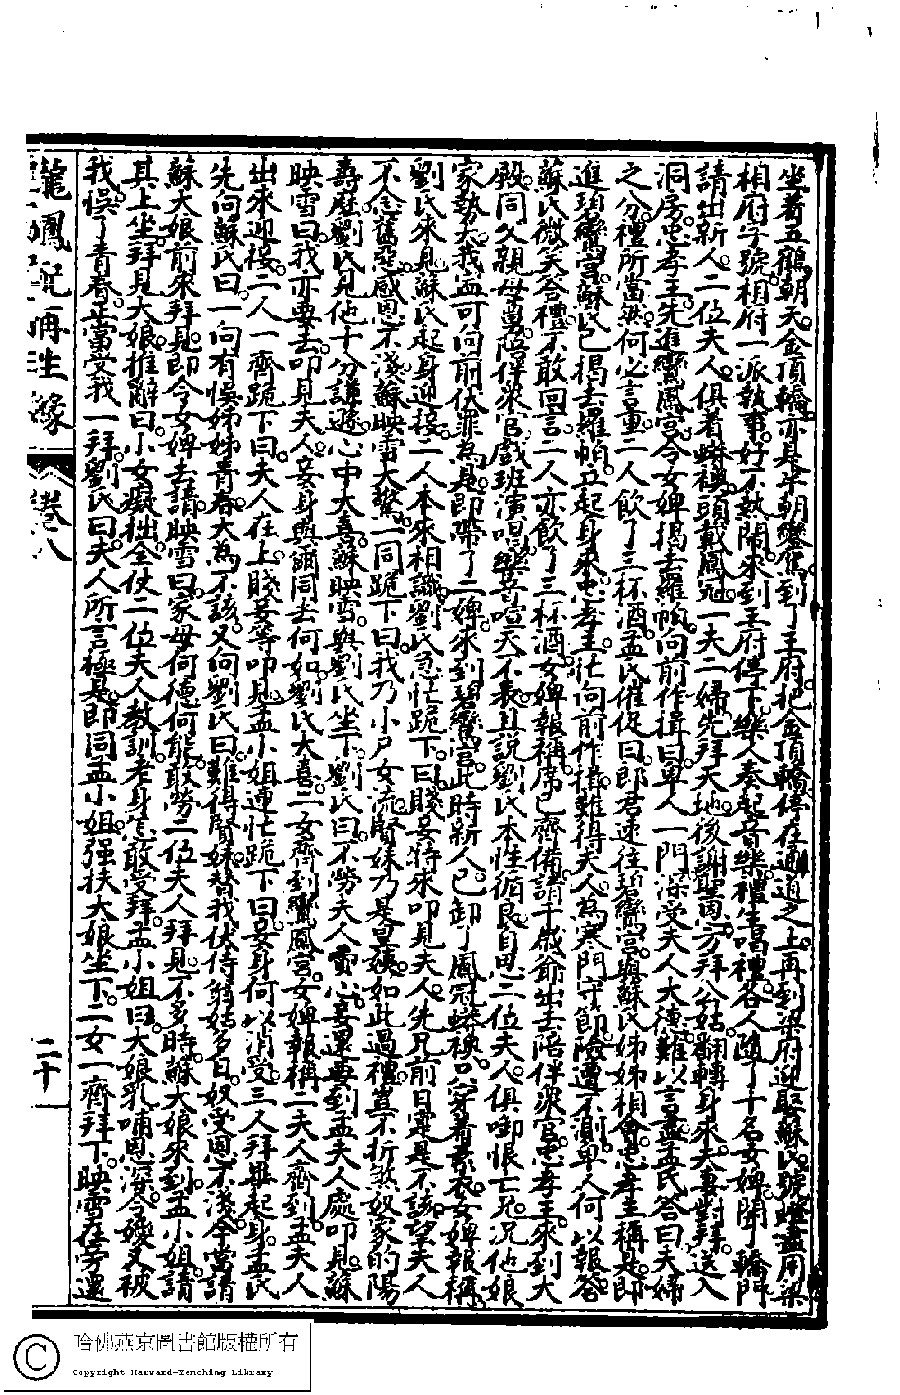 坐着五鶴朝天金頂轎亦是半朝鑾駕到了王府把金頂轎停在通道之上再到梁府迎娶蘇氏號燈盡用梁
相府字號相府一派執事好不熱鬧來到王府停下樂人奏起音樂禮生唱禮各人隨了十名女婢開了轎門
請出新人二位夫人俱着蟒襖頭戴鳳冠一夫二婦先拜天地後謝聖恩方拜公姑翻轉身來夫妻對拜送入
洞房忠孝王先進鸞鳳宮令女婢揭去羅帕向前作揖曰卑人一門深受夫人大德難以言盡孟氏答曰夫婦
之分禮所當然何必言重二人飲了三杯酒孟氏催促曰郎君速往碧鸞宮與蘇氏姊姊相會忠孝王稱是即
進碧鸞宮蘇氏已揭去羅帕立起身來忠孝王忙向前作揖難得夫人為寒門守節險遭不測卑人何以報答
蘇氏微笑答禮不敢回言二人亦飲了三杯酒女婢報稱席已齊備請千歲爺出去陪伴衆官忠孝王來到大
殿同父親母舅陪伴衆官戲班演唱樂音喧天不表且說劉氏本性循良自思二位夫人俱啣恨亡兄况他娘
家勢大我寧可向前伏罪為是即帶了二婢來到碧鸞宮此時新人已卸了鳳冠蟒襖只穿着素衣女婢報稱
劉氏來見蘇氏起身迎接二人本來相識劉氏急忙跪下曰賤妾特來叩見夫人先兄前日實是不該望夫人
不念舊惡感恩不淺蘇映雪大驚一同跪下曰我乃小戶女流賢妹乃是皇姨如此過禮豈不折煞奴家的陽
壽麼劉氏見他十分謙遜心中大喜蘇映雪與劉氏坐下劉氏曰不勞夫人費心妾還要到孟夫人處叩見蘇
映雪曰我亦要去叩見夫人妾身與爾同去何如劉氏大喜二女齊到鸞鳳宮女婢報稱二夫人齊到孟夫人
出來迎接二人一齊跪下曰夫人在上賤妾等叩見孟小姐連忙跪下曰妾身何以消受三人拜畢起身孟氏
先向蘇氏曰一向有悞姊姊青春大為不該又向劉氏曰難得賢妹替我伏侍翁姑多日奴受恩不淺今當請
蘇大娘前來拜見即令女婢去請映雪曰家母何德何能敢勞二位夫人拜見不多時蘇大娘來到孟小姐請
其上坐拜見大娘推辭曰小女癡拙全仗二位夫人教訓老身怎敢受拜孟小姐曰大娘乳哺恩深令嬡又被
我悞了青春正當受我一拜劉氏曰夫人所言極是即同孟小姐强扶大娘坐下二女一齊拜下映雪在旁還
龍鳳配再生緣 卷八 二十
哈佛燕京圖書館版權所有
Copyright Harvard-Yenching Library